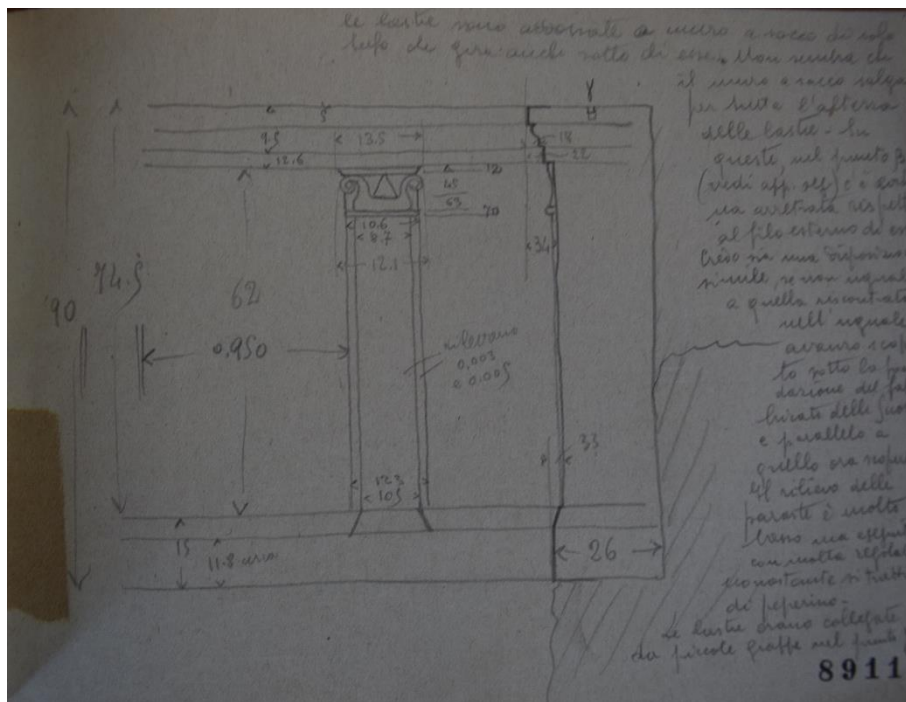 le lastre sono addossate a muro a sacco di solo
tufo che gira anche sotto di esse. Non sembra che
il muro a sacco salga
per tutta l'altezza
delle lastre - In
queste, nel punto B
(vedi app. sez) c'è
ma arretrata rispetto
al filo esterno di
Credo sia una disposizione
simile, se non uguale
a quella riscontrata
nell'
avanzo scoper
to sotto la fon
dazione del fab
bricato delle
e parallelo a
quello ora
Il rilievo delle
paraste è molto
basso ma eseguito
con molta regola
nonostante si tratti
di peperino -
Le lastre erano collegate
da piccole grappe nel punto
γ
9.5
13.5
18
12.6
22
12
45
63
70
10.6
8.7
34
12.1
74.5
90
62
0,950
rilevano
0,003
e 0,005
33
12.3
10.5
15
11.8 circa
26
8911